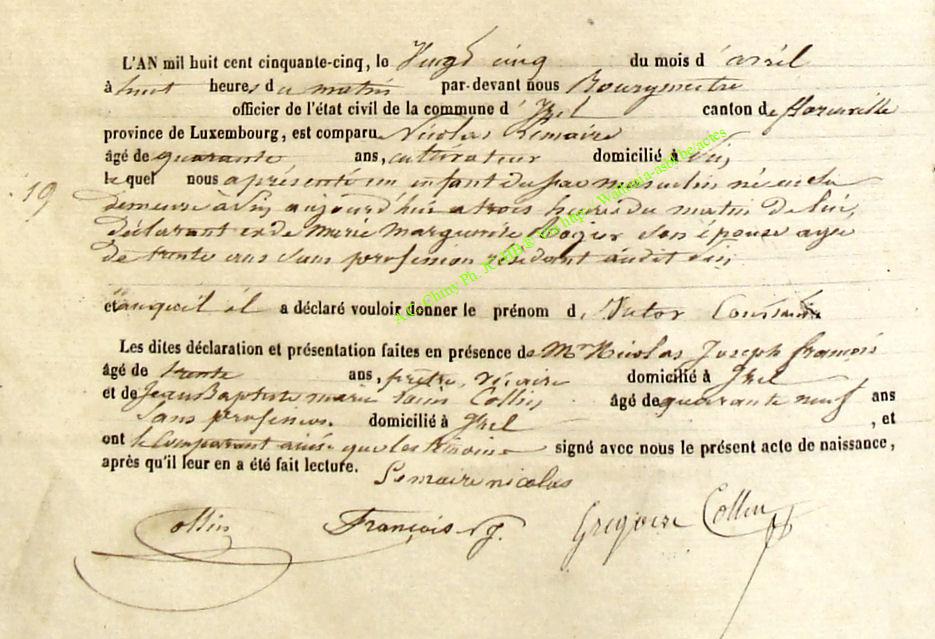 L'AN mil huit cent cinquante-cinq, le Vingt cinq du mois d'avril
à huit heures du matin par-devant nous Bourgmestre
officier de l'état civil de la commune d'Izel canton de Florenville
province de Luxembourg, est comparu Nicolas Lemaire
âgé de quarante ans, cultivateur domicilié à
19
le quel nous a présenté un enfant du sexe masculin né en sa
demeure à aujourd'hui a trois heures du matin de lui
déclarant et de Marie Marguerite Rogier son épouse agée
de trente ans sans profession résidant audit
et auquel il a déclaré vouloir donner le prénom de Victor Constant
Les dites déclaration et présentation faites en présence de Mr Nicolas Joseph françois
âgé de trente ans, prêtre, vicaire domicilié à Izel
et de Jean Baptiste marie Collin âgé de quarante neuf ans
Sans profession domicilié à Izel , et
ont le Comparant ainsi que les témoins signé avec nous le présent acte de naissance,
après qu'il leur en a été fait lecture.
Lemaire nicolas
Collin François N J. Gregoire Collin